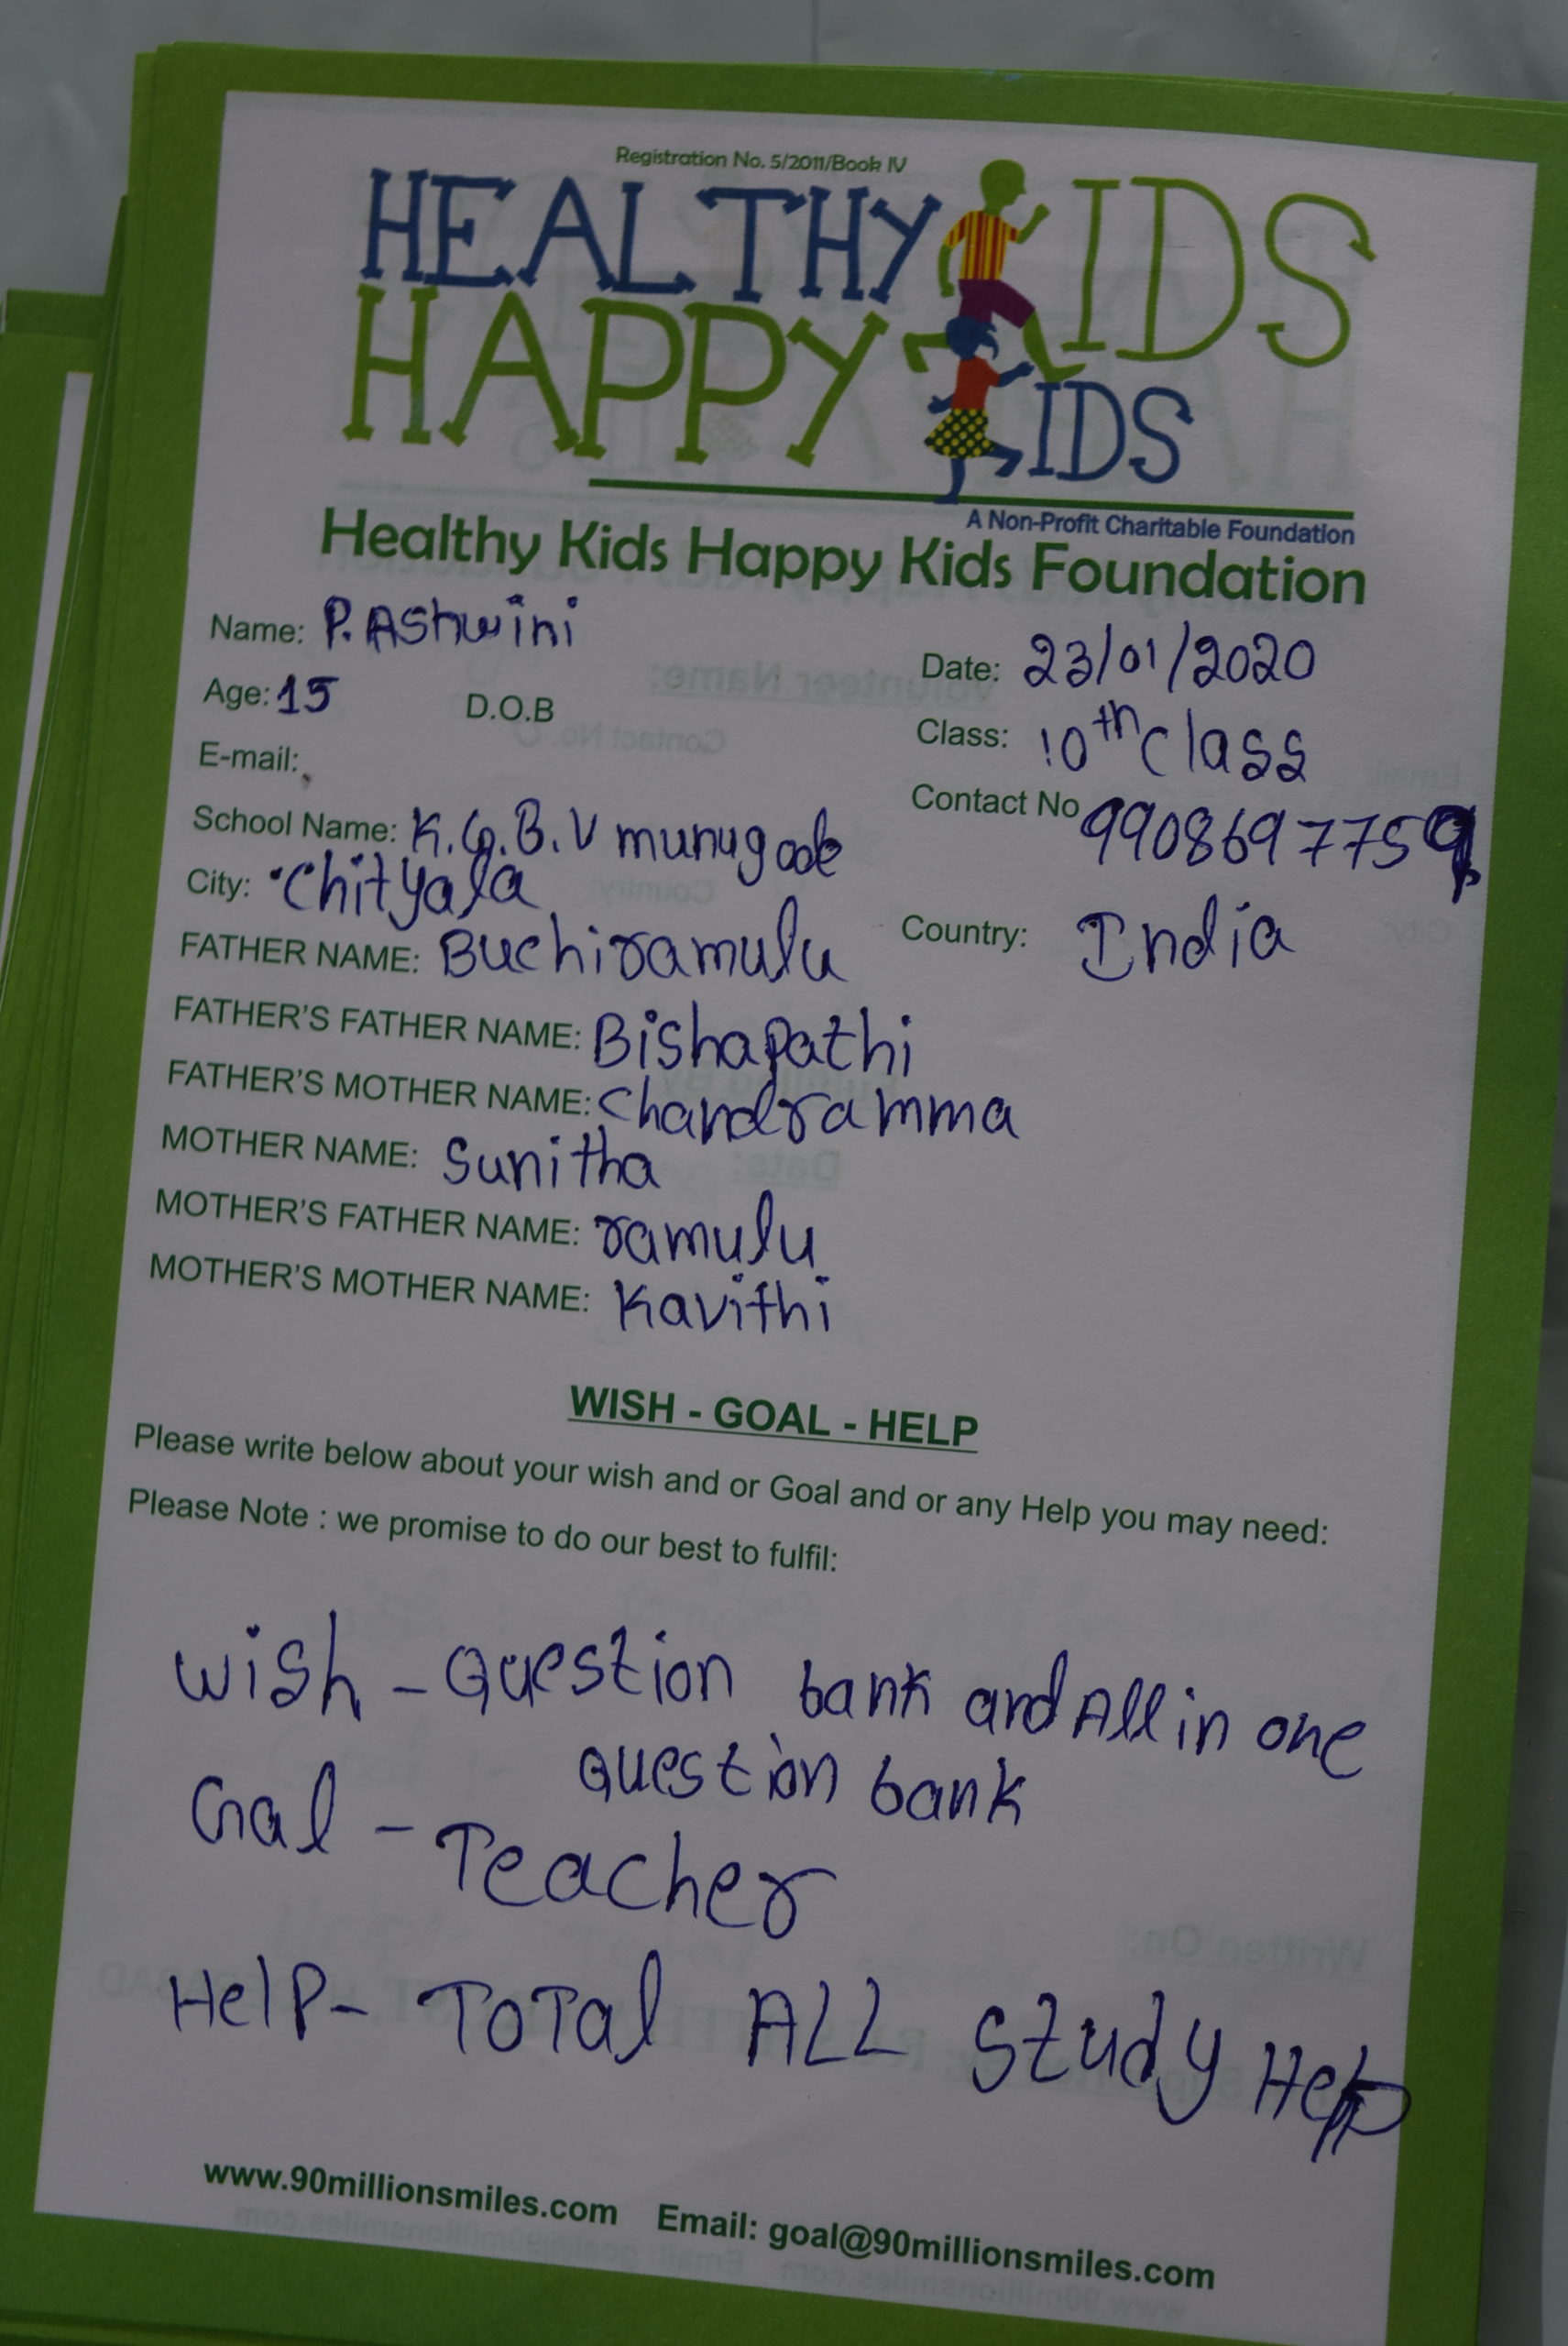 Registration No. 5/2011/Book IV
HEALTHY KIDS
HAPPY KIDS
A Non-Profit Charitable Foundation
Healthy Kids Happy Kids Foundation
Name: P. Ashwini
Date: 23/01/2020
Age: 15 D.O.B
Class: 10th class
E-mail:
Contact No 9908697759
School Name: K.G.B.V munugode
City: Chityala
Country: India
FATHER NAME: Buchiramulu
FATHER'S FATHER NAME: Bishapathi
FATHER'S MOTHER NAME: Chandramma
MOTHER NAME: Sunitha
MOTHER'S FATHER NAME: ramulu
MOTHER'S MOTHER NAME: Kavithi
WISH - GOAL - HELP
Please write below about your wish and or Goal and or any Help you may need:
Please Note : we promise to do our best to fulfil:
wish - Question bank and All in one
Question bank
Goal - Teacher
Help - Total ALL Study Help
www.90millionsmiles.com Email: goal@90millionsmiles.com